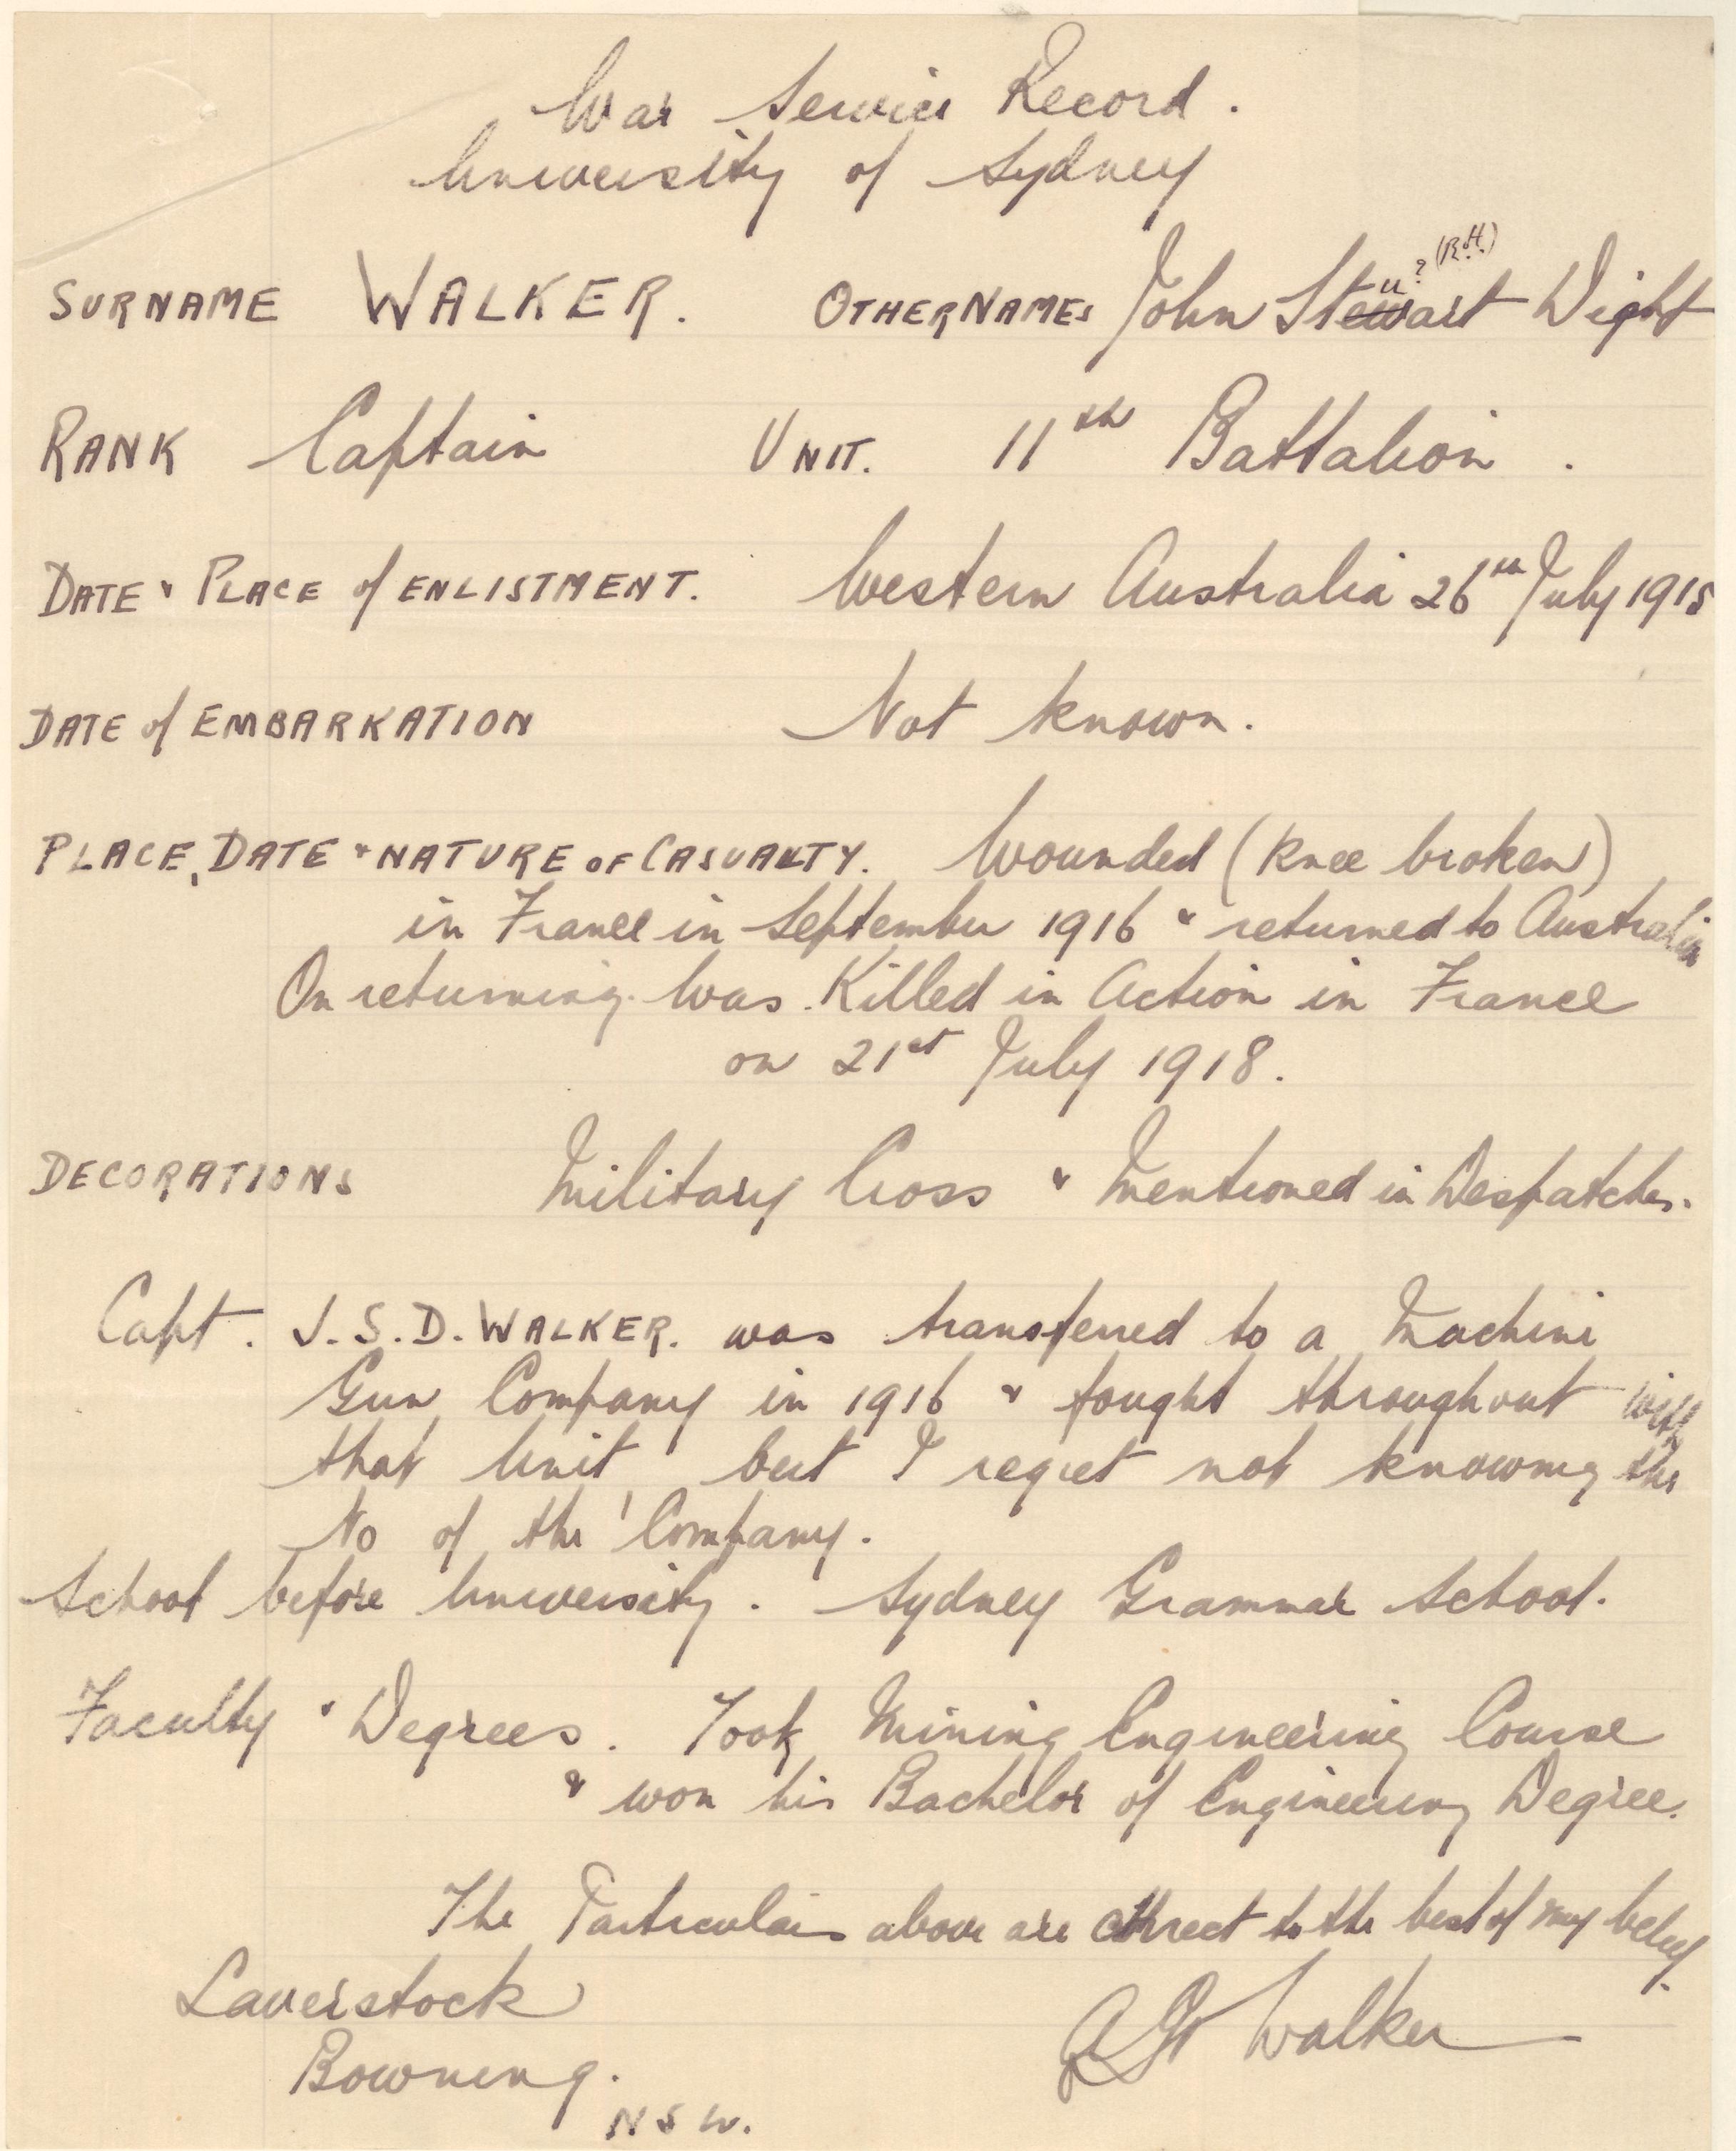 War Service Record.
University of Sydney
u? (R.H.)
SURNAME WALKER. OTHER NAMES John Stewart Dight
RANK Captain UNIT. 11th Battalion.
DATE & PLACE of ENLISTMENT. Western Australia 26th July 1915
DATE of EMBARKATION Not known.
PLACE, DATE & NATURE OF CASUALTY. Wounded (knee broken)
in France in September 1916 & returned to Australia
On returning was Killed in Action in France
on 21st July 1918.
DECORATIONS Military Cross & Mentioned in Despatches.
Capt. J.S.D. WALKER. was transferred to a Machine
Gun Company in 1916 & fought throughout with
that Unit, but I regret not knowing the
No of the Company.
School before University. Sydney Grammar School.
Faculty & Degrees. Took Mining Engineering Course
& won his Bachelor of Engineering Degree.
The Particulars above are correct to the best of my belief.
Laverstock
Walker
Bowning.
NSW.